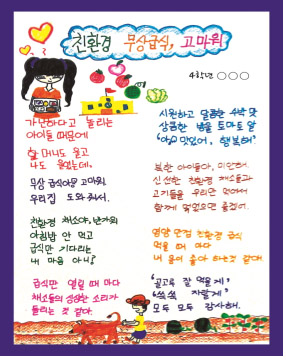 친환경 무상급식, 고마워
4학년 ○○○
가난하다고 놀리는
아이들 때문에
할머니도 울고
나도 울었는데,
무상 급식아 고마워.
우리집 도와줘서.
친환경 채소야, 반가워
아침밥 안 먹고
급식만 기다리는
내 마음 아니?
급식판 열릴 때 마다
채소들의 싱싱한 소리가
들리는 것 같다.
시원하고 달콤한 수박 맛
상큼한 방울토마토 알
"아 맛있어, 행복해"
북한 아이들아, 미안해.
신선한 친환경 채소들과
고기들을 우리만 먹어서
함께 먹었으면 좋겠어.
영양 만점 친환경 급식
먹을 때 마다
내 몸이 좋아 하는것 같애.
"골고루 잘 먹을게"
"쑥쑥 자랄게"
모두 모두 감사해.